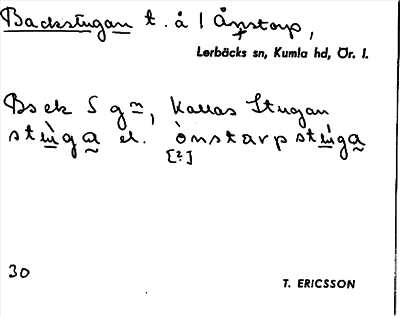 Backstugan t. å 1 Ånstorp,
Lerbäcks sn, Kumla hd, Ör. l.
Bs ek S g~, kallas Stugan
stùga el. ònstarpstùga
[?]
30
T. ERICSSON